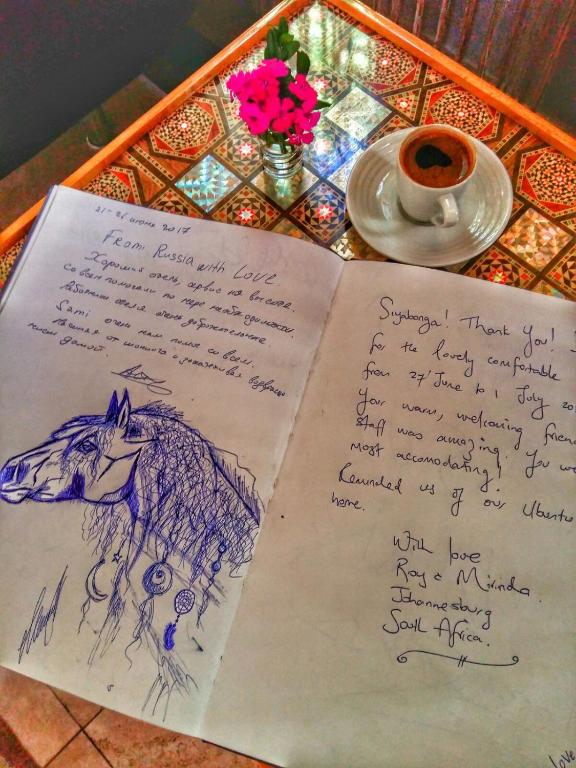 21-26 июня 2017
From Russia with Love
Хороший отель, сервис на высоте.
Со всем помогали по мере необходимости.
Работники отеля очень доброжелательные
Sami очень нам помог со всем,
начиная от шопинга и заканчивая
домой.
Siyabonga! Thank You!
for the lovely comfortable
from 27 June to 1 July 20
Your warm, welcoming frien
staff was amazing. You we
most accomodating!
Reminded us of our Ubuntu
home.
With love
Roy & Mirinda.
Johannesburg
South Africa.
love